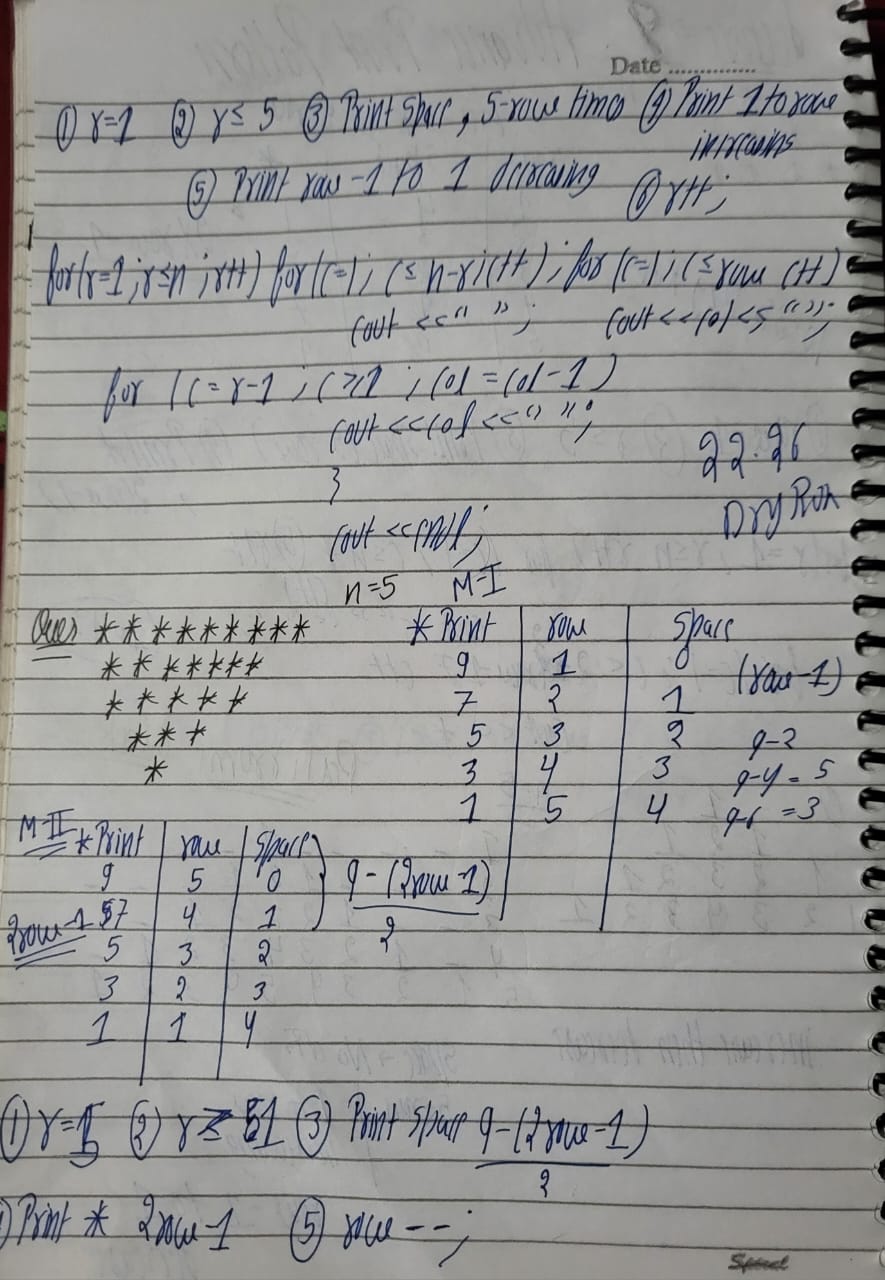 Date ..............
① r=1 ② r≤ 5 ③ Print space, 5-row times ④ Print 1 to row
increasing
⑤ Print row-1 to 1 decreasing ⑥ r++;
for(r=1;r≤n;r++) for(c=1; c≤ n-r;c++); for (c=1; c≤row c++)
cout <<" "; cout<<col<<" ";
for (c=r-1 ; c≥1 ; col = col-1)
cout <<col<<" ";
}
cout <<endl;
22.26
Dry Run
n=5 M-I
Ques * * * * * * * * *
* * * * * * *
* * * * *
* * *
*
* Print row space
9 1 0 (row-1)
7 2 1
5 3 2 9-2
3 4 3 9-4 = 5
1 5 4 9-6 = 3
M-II
* Print row space
9 5 0
7 4 1
5 3 2
3 2 3
1 1 4
2row-1
9-(2row-1)
2
① r=5 ② r≥1 ③ Print space 9-(2row-1)
2
Print * 2row-1 ⑤ row--;
Spiral